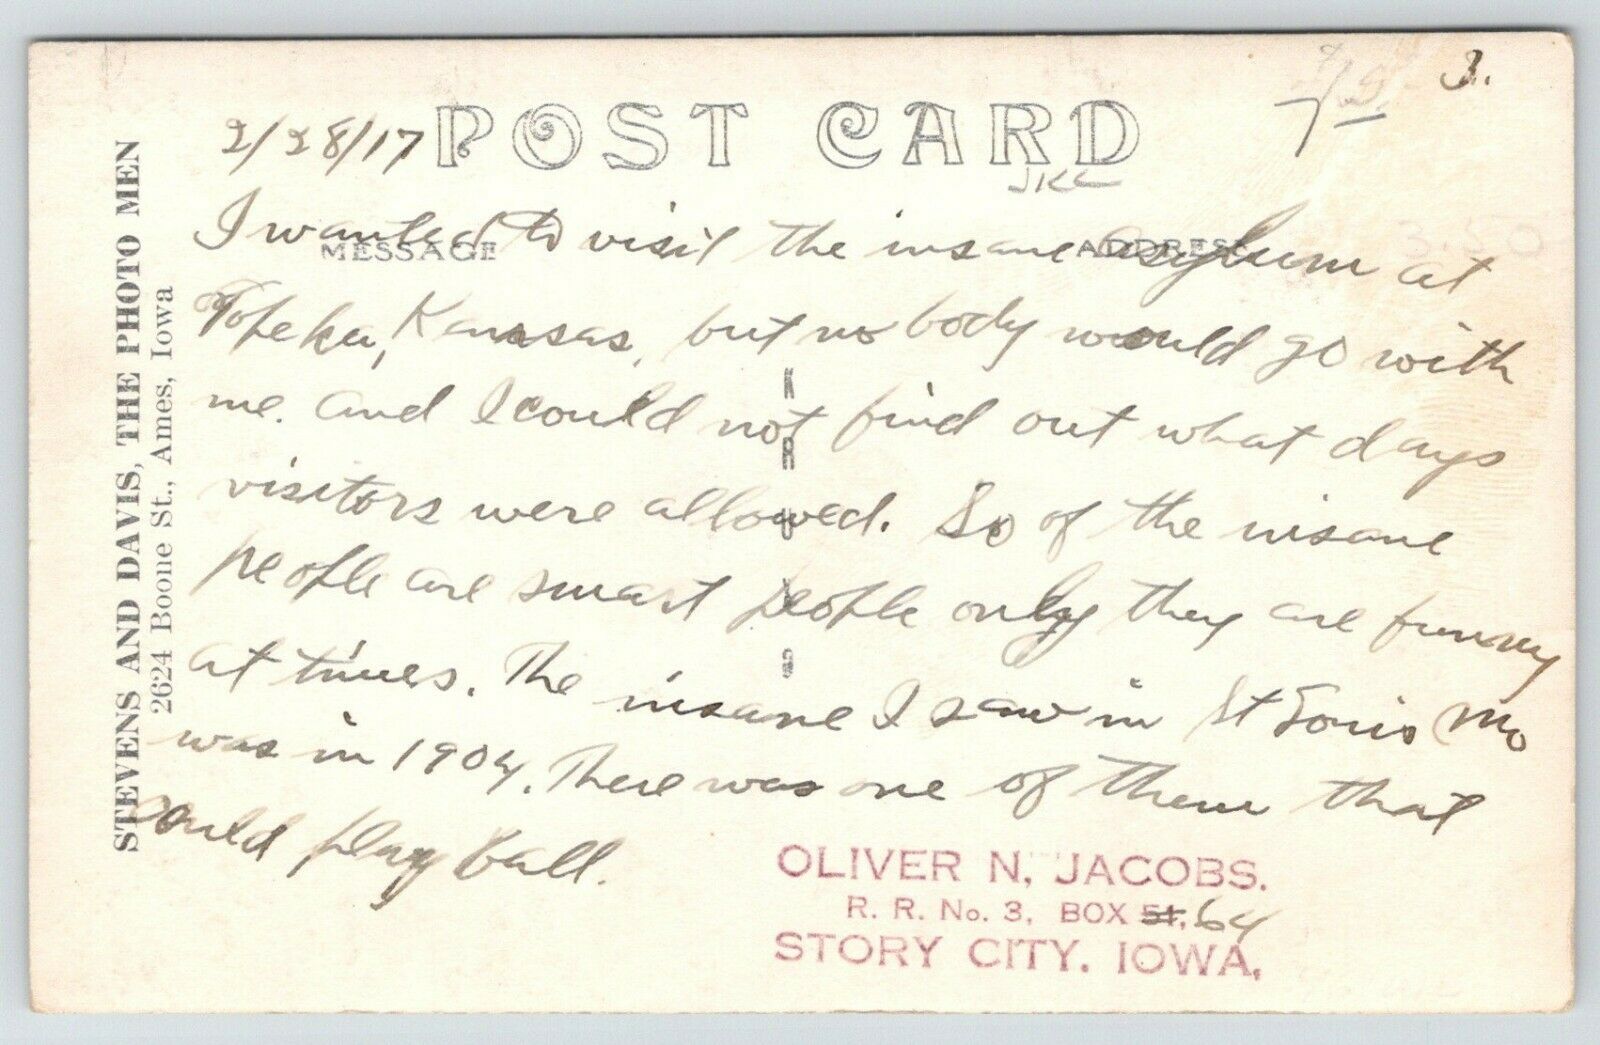 3.
7
2/28/17 POST CARD
I wanted to visit the insane asylum at
MESSAGE ADDRESS
Topeka, Kansas, but no body would go with
me. and I could not find out what days
visitors were allowed. So of the insane
people are smart people only they are funny
at times. The insane I saw in St Louis Mo
was in 1904. There was one of them that
could play ball.
OLIVER N. JACOBS.
R. R. No. 3, BOX 51, 64
STORY CITY, IOWA,
STEVENS AND DAVIS, THE PHOTO MEN
2624 Boone St., Ames, Iowa
3.50